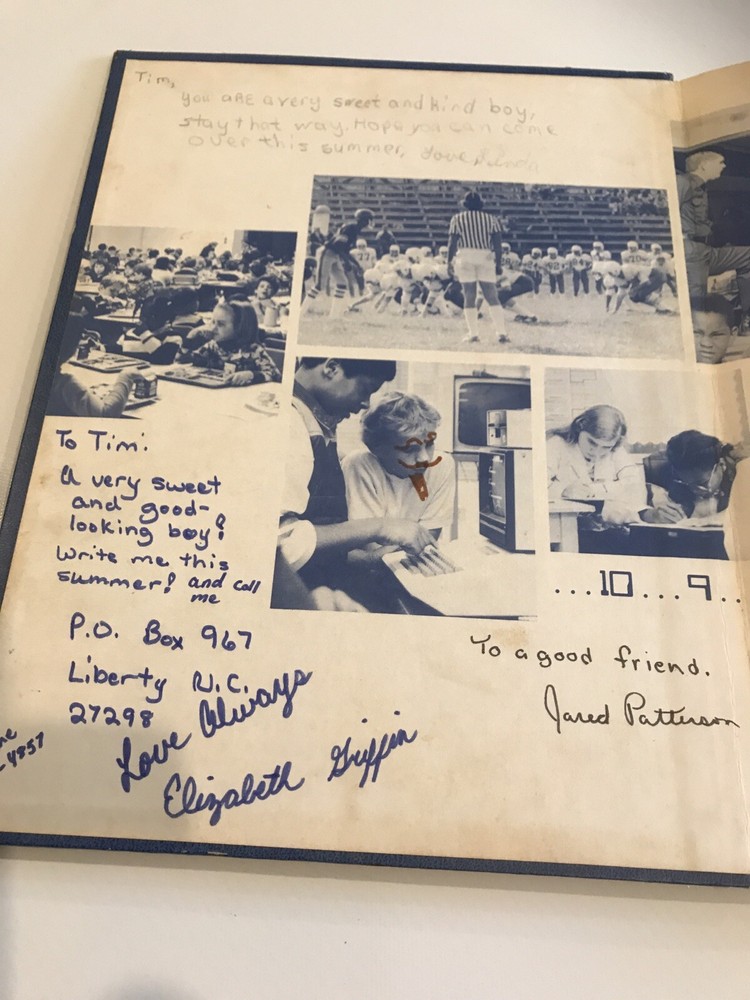 Tim,
you aRE a very sweet and kind boy,
stay that way. Hope you can come
over this summer, Love
To Tim:
A very sweet
and good-
looking boy!
Write me this
summer! and call
me
P.O. Box 967
Liberty N.C.
27298
Love Always
Elizabeth Griffin
4857
...10...9...
To a good friend.
Jared Patterson